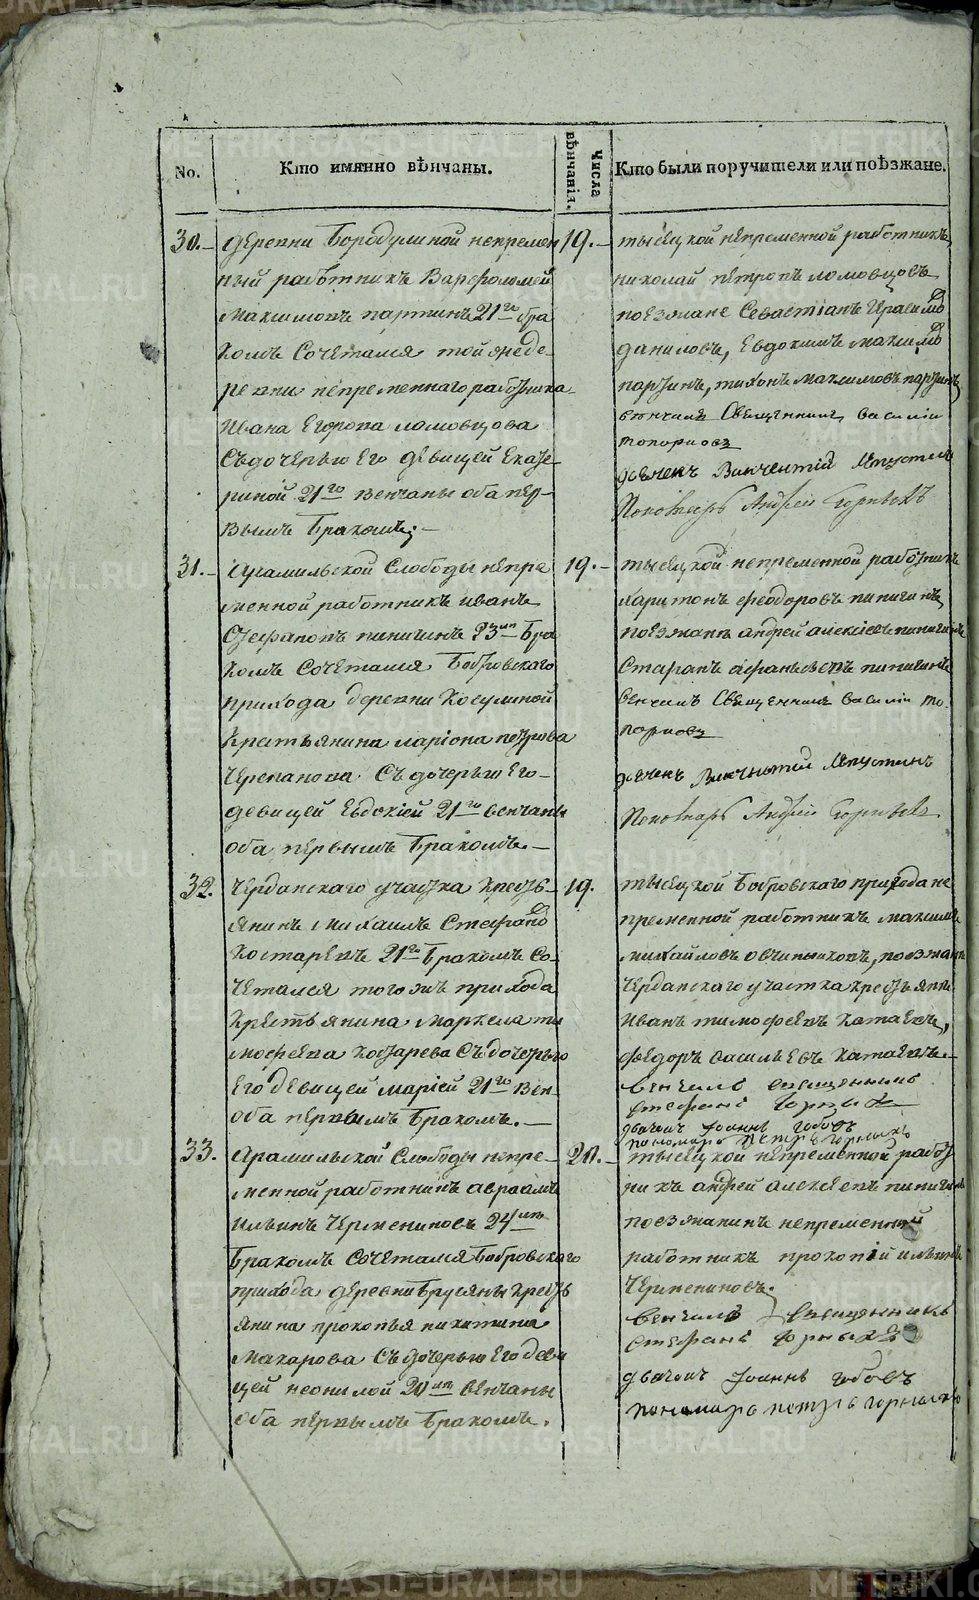 No.
Кто имянно вѣнчаны.
Числа вѣнчанія.
Кто были поручители или поѣзжане.
30.
деревни Бородулиной непремен
ный работникъ Варфоломей
Максимовъ партинъ 21го бра
комъ Сочетался тойжеде-
ревни непременнаго работника
Ивана Егорова ломовцова
Съдочерью Его девицей Екате
риной 21го венчаны оба пер-
вымъ Бракомъ.
19.
тысецкой непременной работникъ
николай петровъ ломовцовъ
поезжане Севастіанъ Герасимо
даниловъ, Евдокимъ максимо
партинъ, тихонъ максимовъ партинъ
венчалъ Священникъ василій
топорковъ
дьячекъ Викентій
Пономарь Андрей
31.
Арамильской Слободы непре
менной работникъ иванъ
Стефановъ пиничинъ 23 лт Бра
комъ Сочетался Бобровскаго
прихода деревни Косулиной
Крестьянина ларіона петрова
Черепанова Съ дочерью Его
девицей Евдокіей 21го венчаны
оба первымъ Бракомъ.
19.
тысецкой непременной работникъ
Харитонъ феодоровъ пиничинъ
поезжанъ андрей алексіевъ пиничинъ
Афанасьевъ пиничинъ
венчалъ Священникъ василій то
порковъ
Пономарь Андрей
32.
Черданскаго участка Кресть-
янинъ михаилъ Стефано
Костаревъ 21го Бракомъ Со-
четался тогожъ прихода
Крестьянина маркела ти
мофеева Костарева Съдочерью
Его девицей маріей 21го вен
оба первымъ Бракомъ.
19.
тысецкой Бобровскаго прихода не
пременной работникъ максимъ
михайловъ овчинниковъ, поезжане
Черданскаго участка крестьяне
Иванъ тимофеевъ катаевъ,
федоръ васильевъ катаевъ
венчалъ священникъ
стефанъ Горныхъ
дьячокъ Іоаннъ
пономарь Петръ Горныхъ
33.
Арамильской Слободы непре-
менной работникъ авраамъ
ильинъ Черменинов 24 лт
Бракомъ сочетался Бобровскаго
прихода деревни Брусяны Кресть
янина прокопья никитина
макарова Съ дочерью Его деви
цей неонилой 20 лт венчаны
оба первымъ Бракомъ.
20.
тысецкой непременной работ
никъ андрей алексеевъ пиничинъ
поезжанинъ непременный
работникъ прокопій ильинъ
Черменинов.
венчалъ Священникъ
стефанъ Горныхъ
дьячокъ Іоаннъ
пономарь петръ горныхъ
METRIKI.GASO-URAL.RU